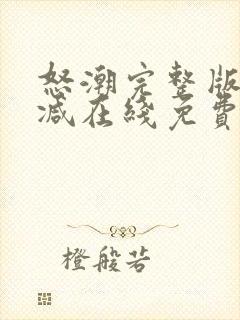 怒潮完整版
减在线免費
橙般若